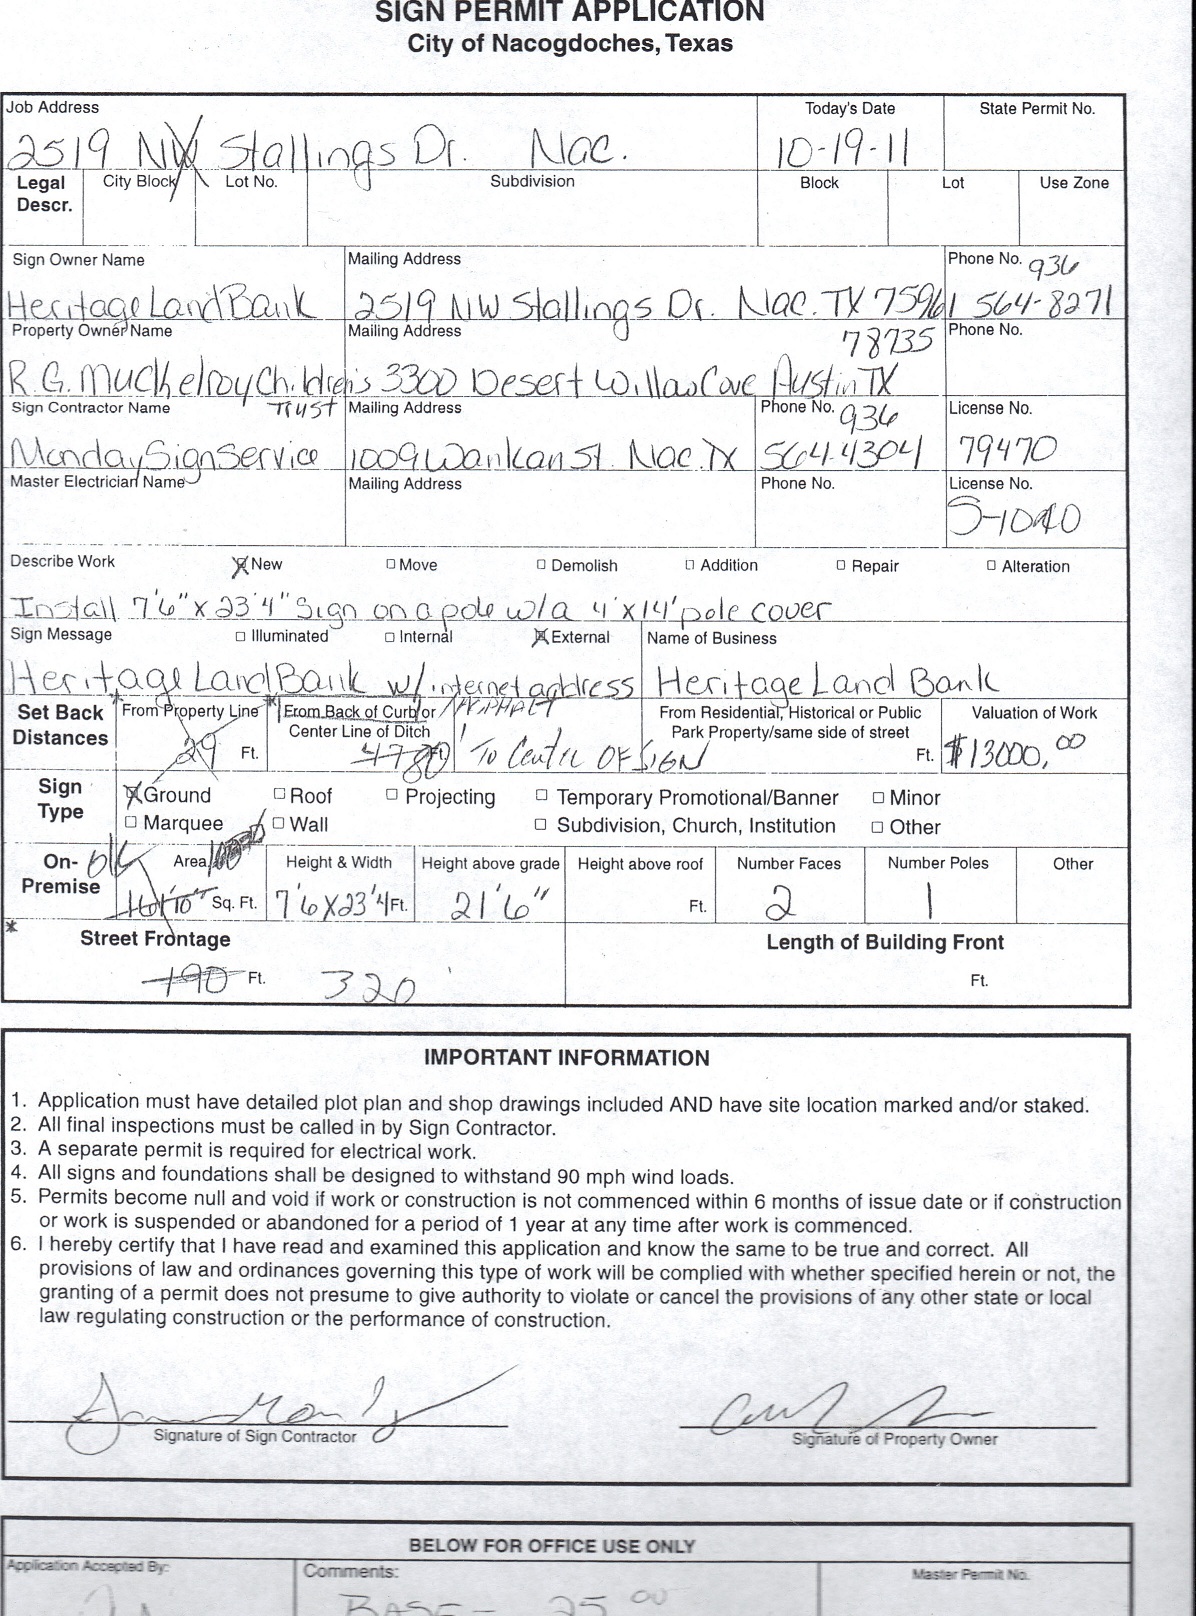 SIGN PERMIT APPLICATION
City of Nacogdoches, Texas
Job Address Today's Date State Permit No.
2519 NW Stallings Dr. Nac. 10-19-11
Legal Descr. City Block Lot No. Subdivision Block Lot Use Zone
Sign Owner Name Mailing Address Phone No. 936
Heritage Land Bank 2519 NW Stallings Dr. Nac. TX 75961 564-8271
Property Owner Name Mailing Address 78735 Phone No.
R.G. Muckelroy Children's 3300 Desert Willow Cove Austin TX
Trust
Sign Contractor Name Mailing Address Phone No. 936 License No.
Monday Sign Service 1009 Wankan St. Nac. Tx 564-4304 79470
Master Electrician Name Mailing Address Phone No. License No.
Describe Work New Move Demolish Addition Repair Alteration
Install 7'6" x 23'4" Sign on a pole w/a 4'x14' pole cover
Sign Message Illuminated Internal External Name of Business
Heritage Land Bank w/ internet address Heritage Land Bank
Set Back Distances * From Property Line * From Back of Curb or Center Line of Ditch ASPHALT From Residential, Historical or Public Park Property/same side of street Valuation of Work
29 Ft. 80' To Centre OF SIGN Ft. $13000.00
Sign Type Ground Roof Projecting Temporary Promotional/Banner Minor
Marquee Wall Subdivision, Church, Institution Other
On-Premise Area Height & Width Height above grade Height above roof Number Faces Number Poles Other
Sq. Ft. 7'6 x 23'4 Ft. 21'6" Ft. 2 1
* Street Frontage Length of Building Front
190 Ft. 320' Ft.
IMPORTANT INFORMATION
1. Application must have detailed plot plan and shop drawings included AND have site location marked and/or staked.
2. All final inspections must be called in by Sign Contractor.
3. A separate permit is required for electrical work.
4. All signs and foundations shall be designed to withstand 90 mph wind loads.
5. Permits become null and void if work or construction is not commenced within 6 months of issue date or if construction
or work is suspended or abandoned for a period of 1 year at any time after work is commenced.
6. I hereby certify that I have read and examined this application and know the same to be true and correct. All
provisions of law and ordinances governing this type of work will be complied with whether specified herein or not, the
granting of a permit does not presume to give authority to violate or cancel the provisions of any other state or local
law regulating construction or the performance of construction.
Signature of Sign Contractor Signature of Property Owner
BELOW FOR OFFICE USE ONLY
Application Accepted By: Comments: Master Permit No.
BASE - 25 00